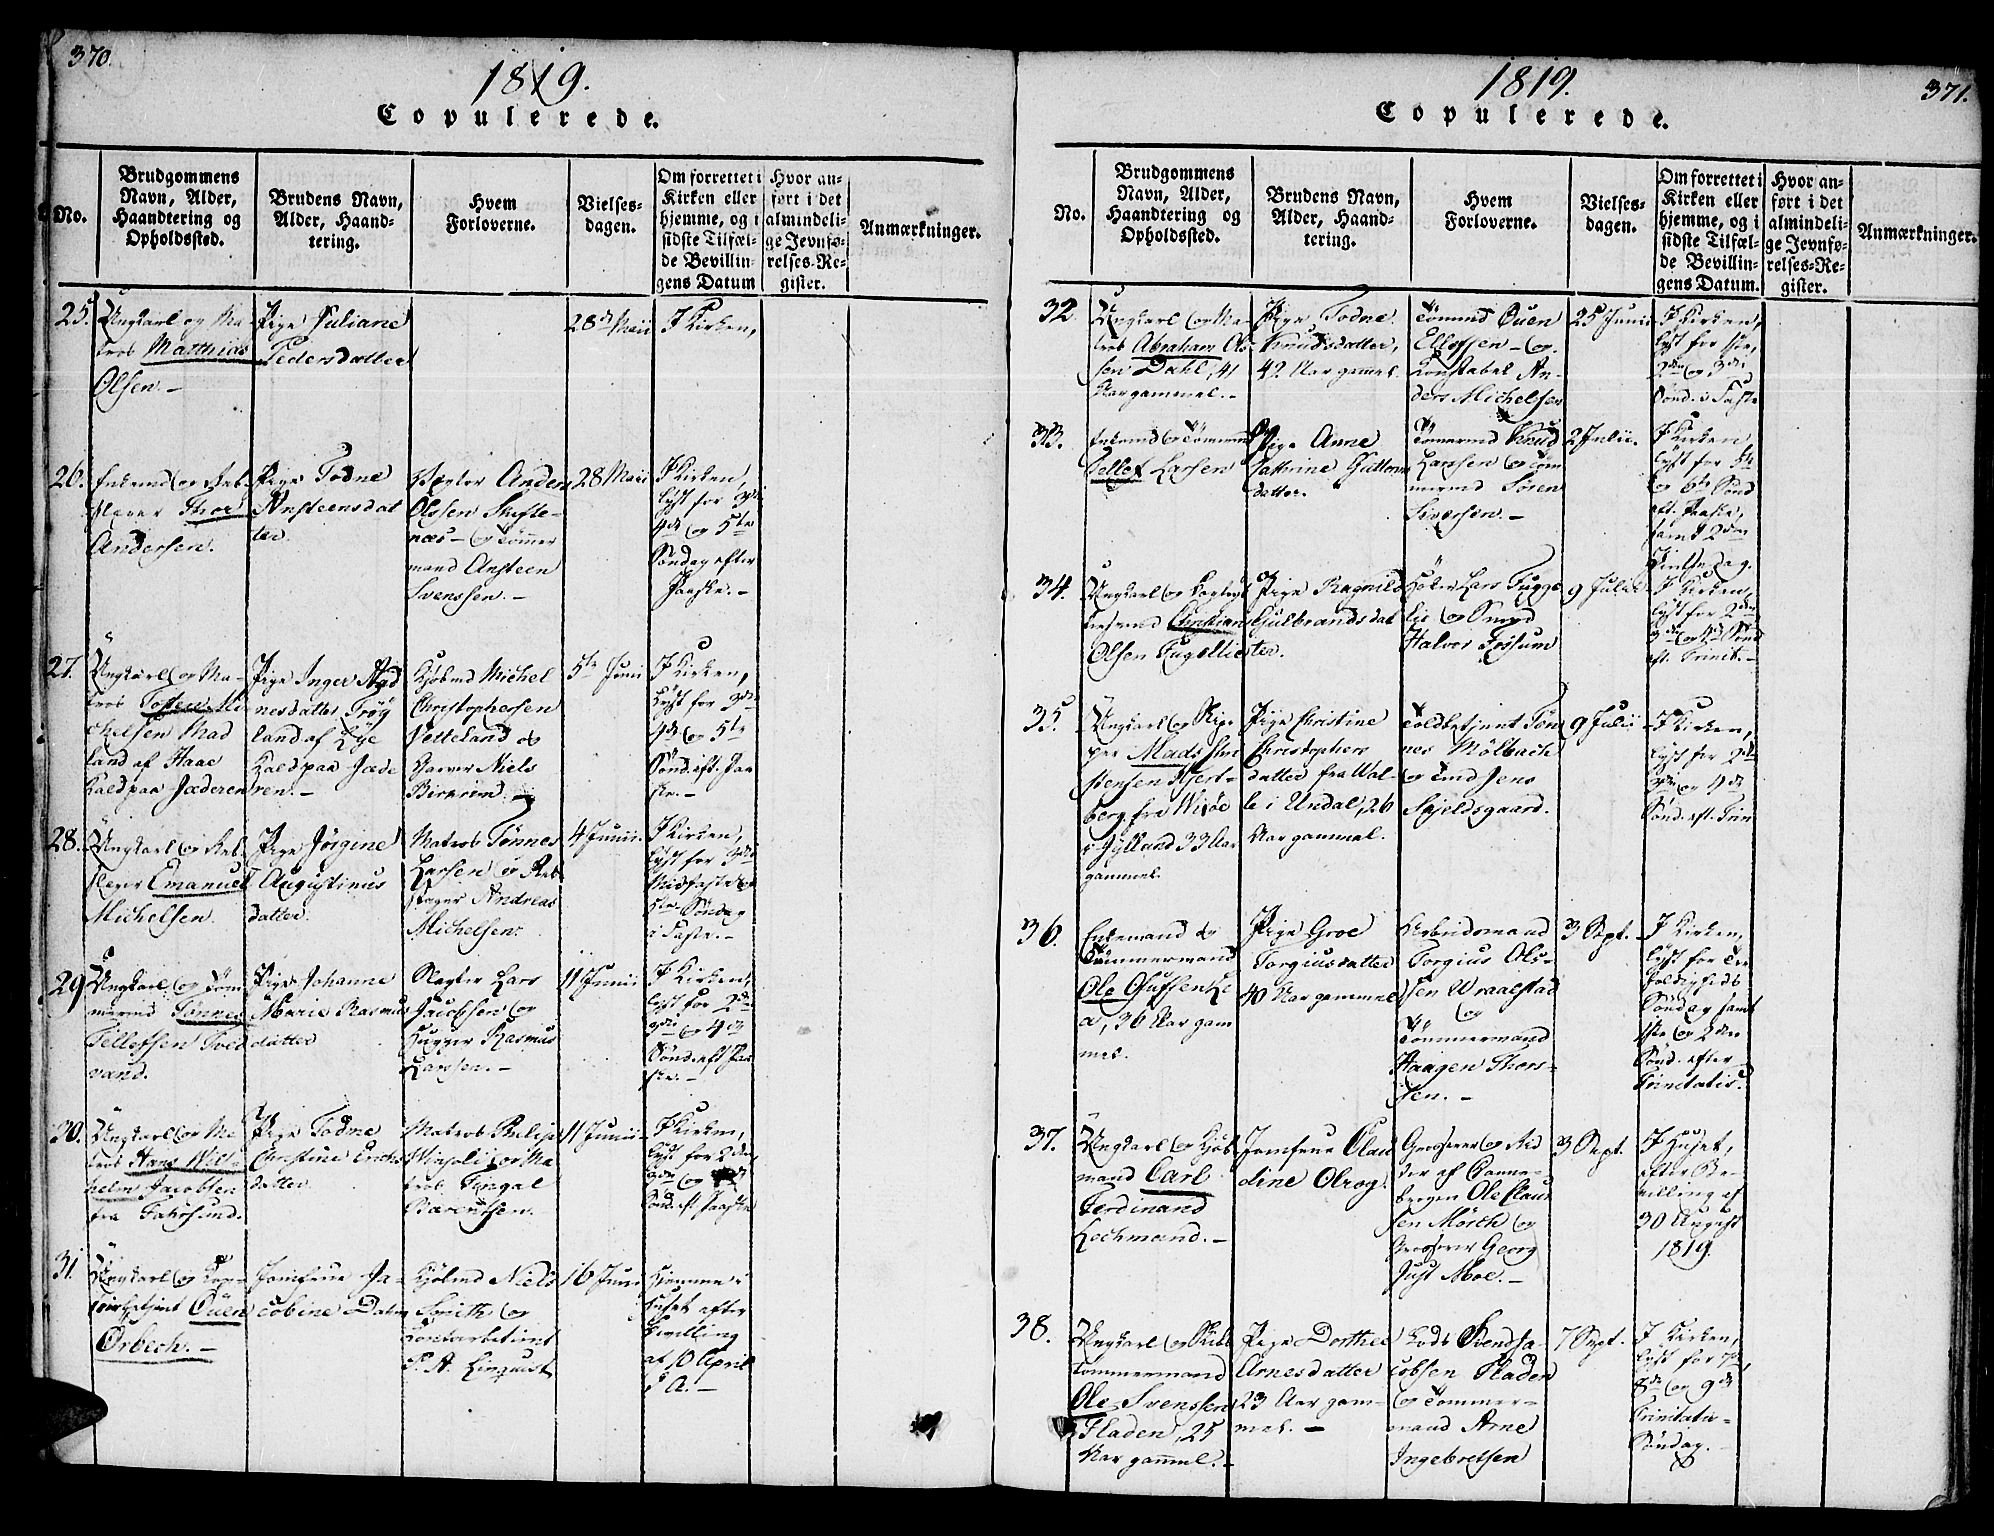 370.
1819.
Copulerede.
No.
Brudgommens
Navn, Alder,
Haandtering og
Opholdssted.
Brudens Navn,
Alder, Haand-
tering.
Hvem
Forloverne.
Vielses-
dagen.
Om forrettet i
Kirken eller
hjemme, og i
sidste Tilfæl-
de Bevillin-
gens Datum
Hvor an-
ført i det
almindeli-
ge Jevnfø-
relses-Re-
gister.
Anmærkninger.
25.
Ungkarl og Ma-
tros Matthias
Olsen.-
Pige Juliane
Pedersdatter
28de Maii
I Kirken,
26.
Enkemd og Reb-
slager Thor
Andersen.
Pige Todne
Ansteensdat
ter.
Anders
Olssen Skifte-
næs- og Tømmer
mand Ansteen
Svenssen.-
28 Maii
I Kirken,
lyst for 3die
4de og 5te
Søndag efter
Paaske.-
27.
Ungkarl og Ma-
tros Tosten Mi
chelsen Mad
land af Haae
Kald paa Jæderen
Pige Inger Aad
nesdatter Trøg
land af Lye
Kald paa Jæde
ren.-
Kjøbmd Michel
Christophersen
Vetteland og
Garver Niels
Birkrem.-
5te Juni
I Kirken,
lyst for 3die
4de og 5te
Sønd. eft. Paa
ske.-
28.
Ungkarl og Reb-
slager Emanuel
Michelsen.
Pige Jørgine
Augustinus
datter.
Matros Tønnes
Larsen og Reb
slager Andreas
Michelsen.
4 Junii.
I Kirken,
lyst for 3die
Midfaste og
5te Søndag
i Faste.-
29
Ungkarl og Tøm
mermd Tønnes
Tellefsen Tved
vand.
Pige Johanne
Marie Rasmus
datter
Slagter Lars
Jacobsen og
Rasmus
Larsen.-
11 Junii
I Kirken,
lyst for 2den
3die og 4de
Sønd. eft Paa
ske.-
30.
Ungkarl og Ma
tros Hans Wil-
helm Jacobsen
fra Fahrsund.
Pige Todne
Christine Erichs
datter.
Matros Philip
og Ma
tros
Berentsen.
11 Junii
I Kirken,
lyst for 2den
3die og 4de
Sønd. eft Paaske
31.
Ungkarl og
Ouen
Ørbech.-
Jomfrue Ja-
cobine Dahm
Kjøbmd Niels
Smith og
P. A. Linquist
16 Juni
Hiemme i
Huset efter
Bevilling
af 10 April
s A.-
1819.
371.
Copulerede.
No.
Brudgommens
Navn, Alder,
Haandtering og
Opholdssted.
Brudens Navn,
Alder, Haand-
tering.
Hvem
Forloverne.
Vielses-
dagen.
Om forrettet i
Kirken eller
hjemme, og i
sidste Tilfæl-
de Bevillin-
gens Datum.
Hvor an-
ført i det
almindeli-
ge Jevnfø-
relses-Re-
gister.
Anmærkninger.
32
Ungkarl og Ma-
tros Abraham Ol-
sen Dahl, 41
Aar gammel.-
Pige Todne
Knudsdatter,
42 Aar gammel.
Tømmd Ouen
Ellefsen- og
Konstabel An-
ders Michelsen
25 Junii
I Kirken,
lyst for 1ste,
2den og 3die
Sønd. i Faste
33.
Enkemd og Tømmermd
Tellef Larsen
Pige Anne
Cathrine Guttorms
datter.
Tømmermd Knud
Larssen og Tøm
mermd Søren
Siversen.-
2 Julii.
I Kirken,
lyst for 5te
og 6te Sønd
eft. Paaske,
samt 2den
Pintse Dag.
34.
Ungkarl og
Christian
Olsen Fugellie
Pige Ragnild
Gulbrandsdat
ter.
Lars Fugge
lie og Smed
Halvor Fossum
9 Julii
I Kirken,
lyst for 2den
3die og 4de Sønd
eft. Trinit.-
35.
Ungkarl og Rige
per Mads
pensen Hjert-
berg fra Wixøe
i Jylland 33 Aar
gammel.
Pige Christine
Christophers
datter fra Wal-
le i Undal, 26
Aar gammel.
Toldbetjent Tøn
nes Mølbach
og Tmd Jens
Skjeldsgaard.
9 Julii
I Kirken,
lyst for 2den
3die og 4de
Sønd. eft. Trin
36.
Enkemand og
Tømmermand
Ole Gufsen Le
a, 36 Aar gam
mel.
Pige Groe
Torgiusdatter
40 Aar gammel
Arbeidsmand
Torgius Ols-
sen Wraalstad
og
Tømmermand
Haagen Thors-
sen.-
3 Sept.
I Kirken,
lyst for Tre
foldigheds
Søndag samt
1ste og 2den
Sønd. efter
Trinitatis.
37.
Ungkarl og Kjøb
mand Carl
Ferdinand
Lechmand.-
Jomfrue Clau
dine Olrog.
Grosserer og Rid
der af Danne-
brogen Ole Claus
sen Mørch og
Grosserer Georg
Just Moe.-
3 Sept.
I Huset,
efter Be-
villing af
30 August
1819.
38.
Ungkarl og Skibs
tømmermand
Ole Svenssen
Fladen, 25
Aar gammel.-
Pige Dorthe
Arnesdatter
23 Aar gam-
mel.-
Lods Svend Ja-
cobsen Fladen
og Tømmer-
mand Arne
Ingebretsen
7 Sept.
I Kirken,
lyst for 7de,
8de og 9de
Trinitatis-
Søndag.-